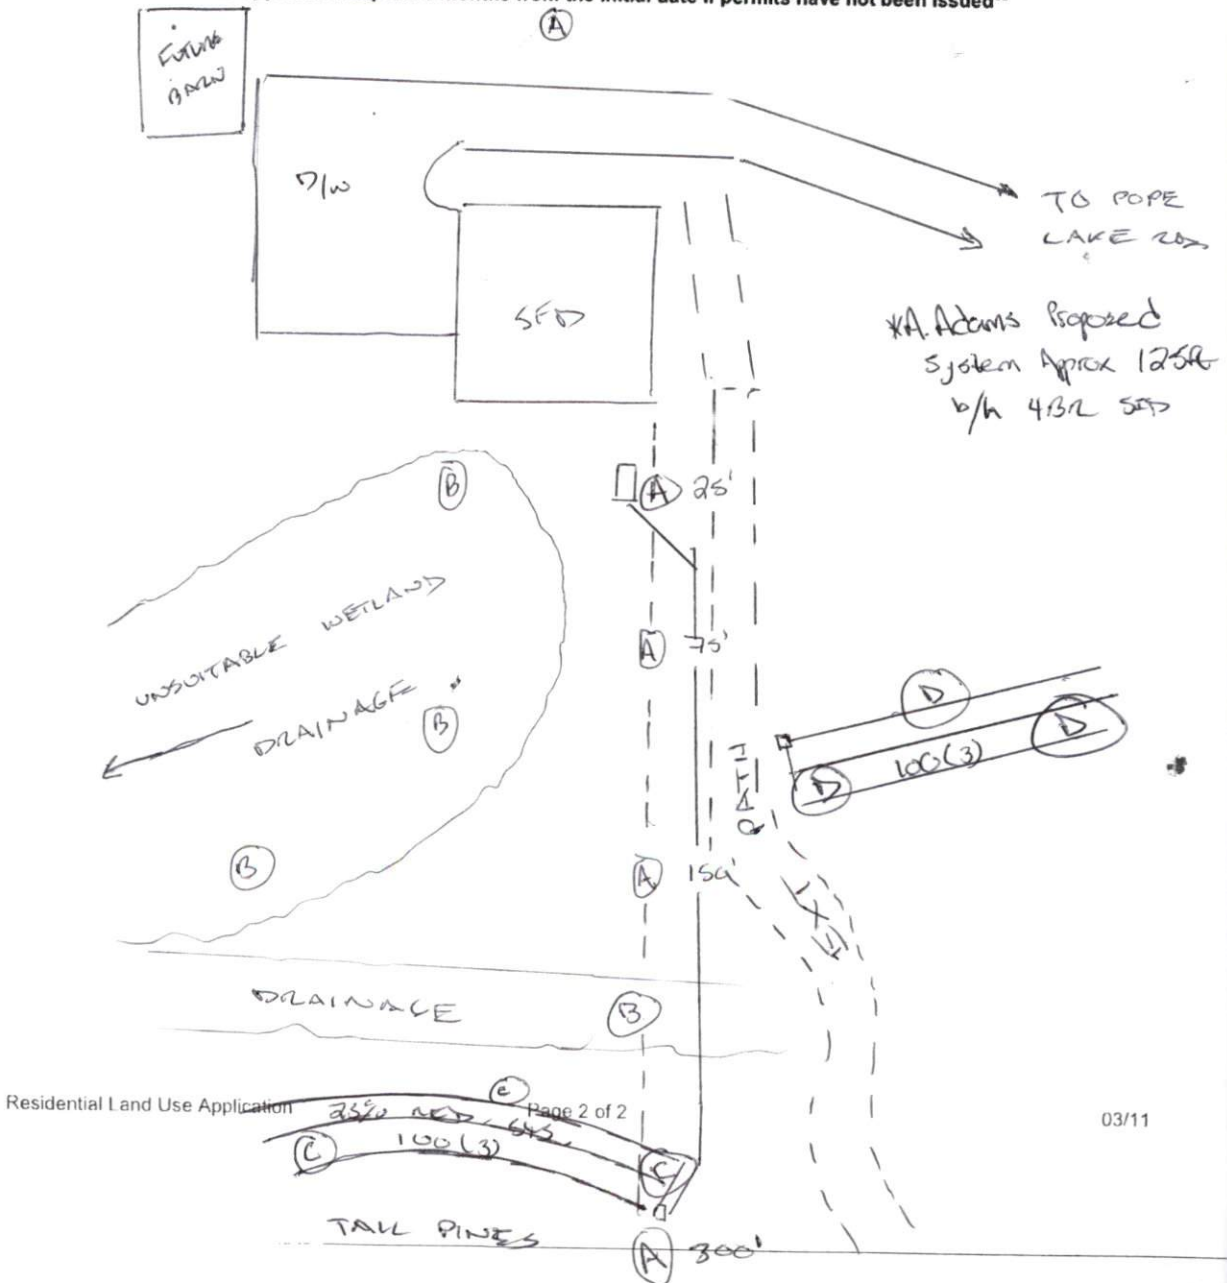 from the initial date if permits have not been issued
A
FUTURE
BARN
D/W
TO POPE
LAKE
SFD
*A. Adams Proposed
System Approx 125ft
b/h 4BR SFD
B
A 25'
UNSUITABLE WETLAND
A 75'
DRAINAGE
B
D
PATH
100(3)
D
D
B
A 150'
EXST
DRAINAGE
B
Residential Land Use Application
C
Page 2 of 2
03/11
25% RED. SYS.
C
100(3)
C
TALL PINES
A 300'